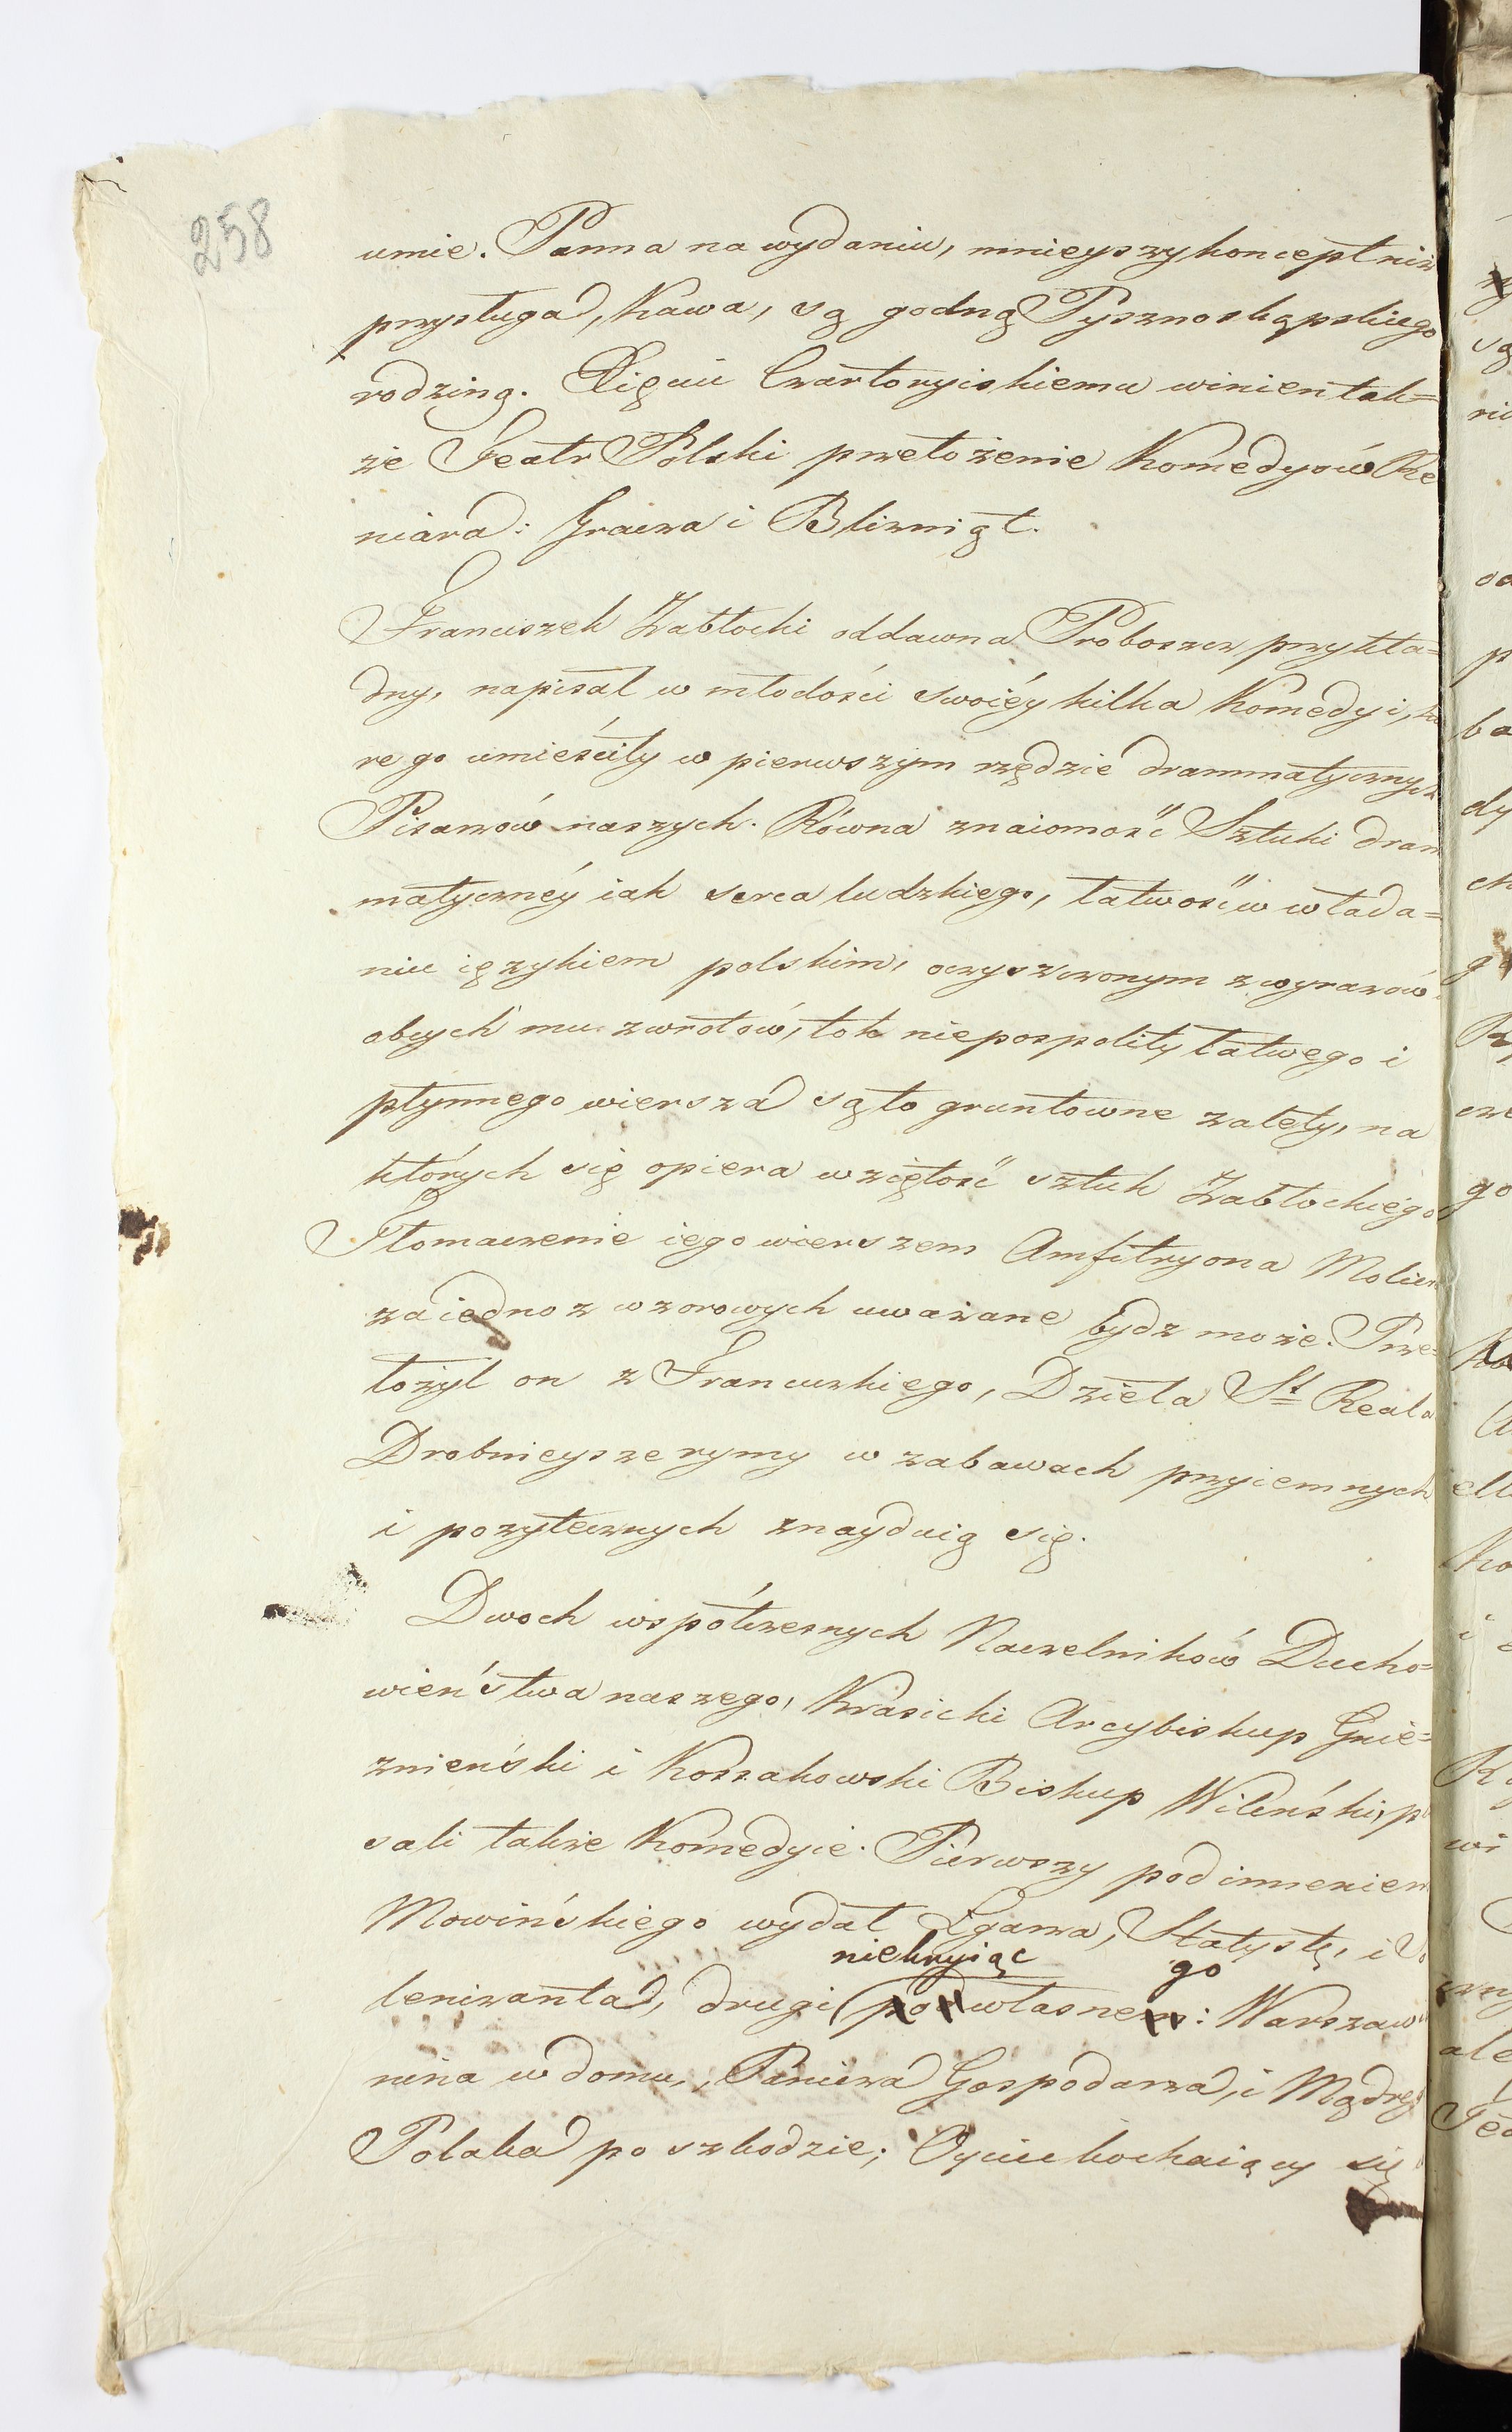 258
umie. Panna na wydaniu, mnieyszy koncept niż
przysługa, Kawa, są godną Pysznoskąpskiego
rodziną. Xięciu Czartoryiskiemu winien tak=
że Teatr Polski przełożenie Komedyów Re
niara: Gracza i Bliźniąt.
Franciszek Zabłocki oddawna Proboszcz przykła=
dny, napisał w młodości swoiéy kilka Komedyi, któ
re go umieściły w pierwszym rzędzie drammatycznych
Pisarzów naszych. Równa znaiomość Sztuki dram
matycznéy iak serca ludzkiego, łatwość w włada=
niu ięzykiem polskim, oczyszczonym z wyrazów
obcych mu zwrotów, tok niepospolity łatwego i
płynnego wiersza są to gruntowne zalety, na
których się opiera wziętość sztuk Zabłockiego
Tłomaczenie iego wierszem Amfitryona Moliera
za iedno z wzorowych uważane bydz może. Prze=
łożył on z Francuzkiego, Dzieła St Reala
Drobnieysze rymy w zabawach przyiemnych
i pożytecznych znayduią się.
Dwoch współczesnych Naczelników Ducho=
wieństwa naszego, Krasicki Arcybiskup Gnie=
znieński i Kossakowski Biskup Wileński, pi
sali także Komedyie. Pierwszy pod immieniem
Mowińskiego wydał Łgarza, Statystę, i So
niekryiąc go
lenizanta, drugi pod własnem: Warszawia
nina w domu, Panicza Gospodarza, i Mądrego
Polaka po szkodzie; Oycieckochaiący się